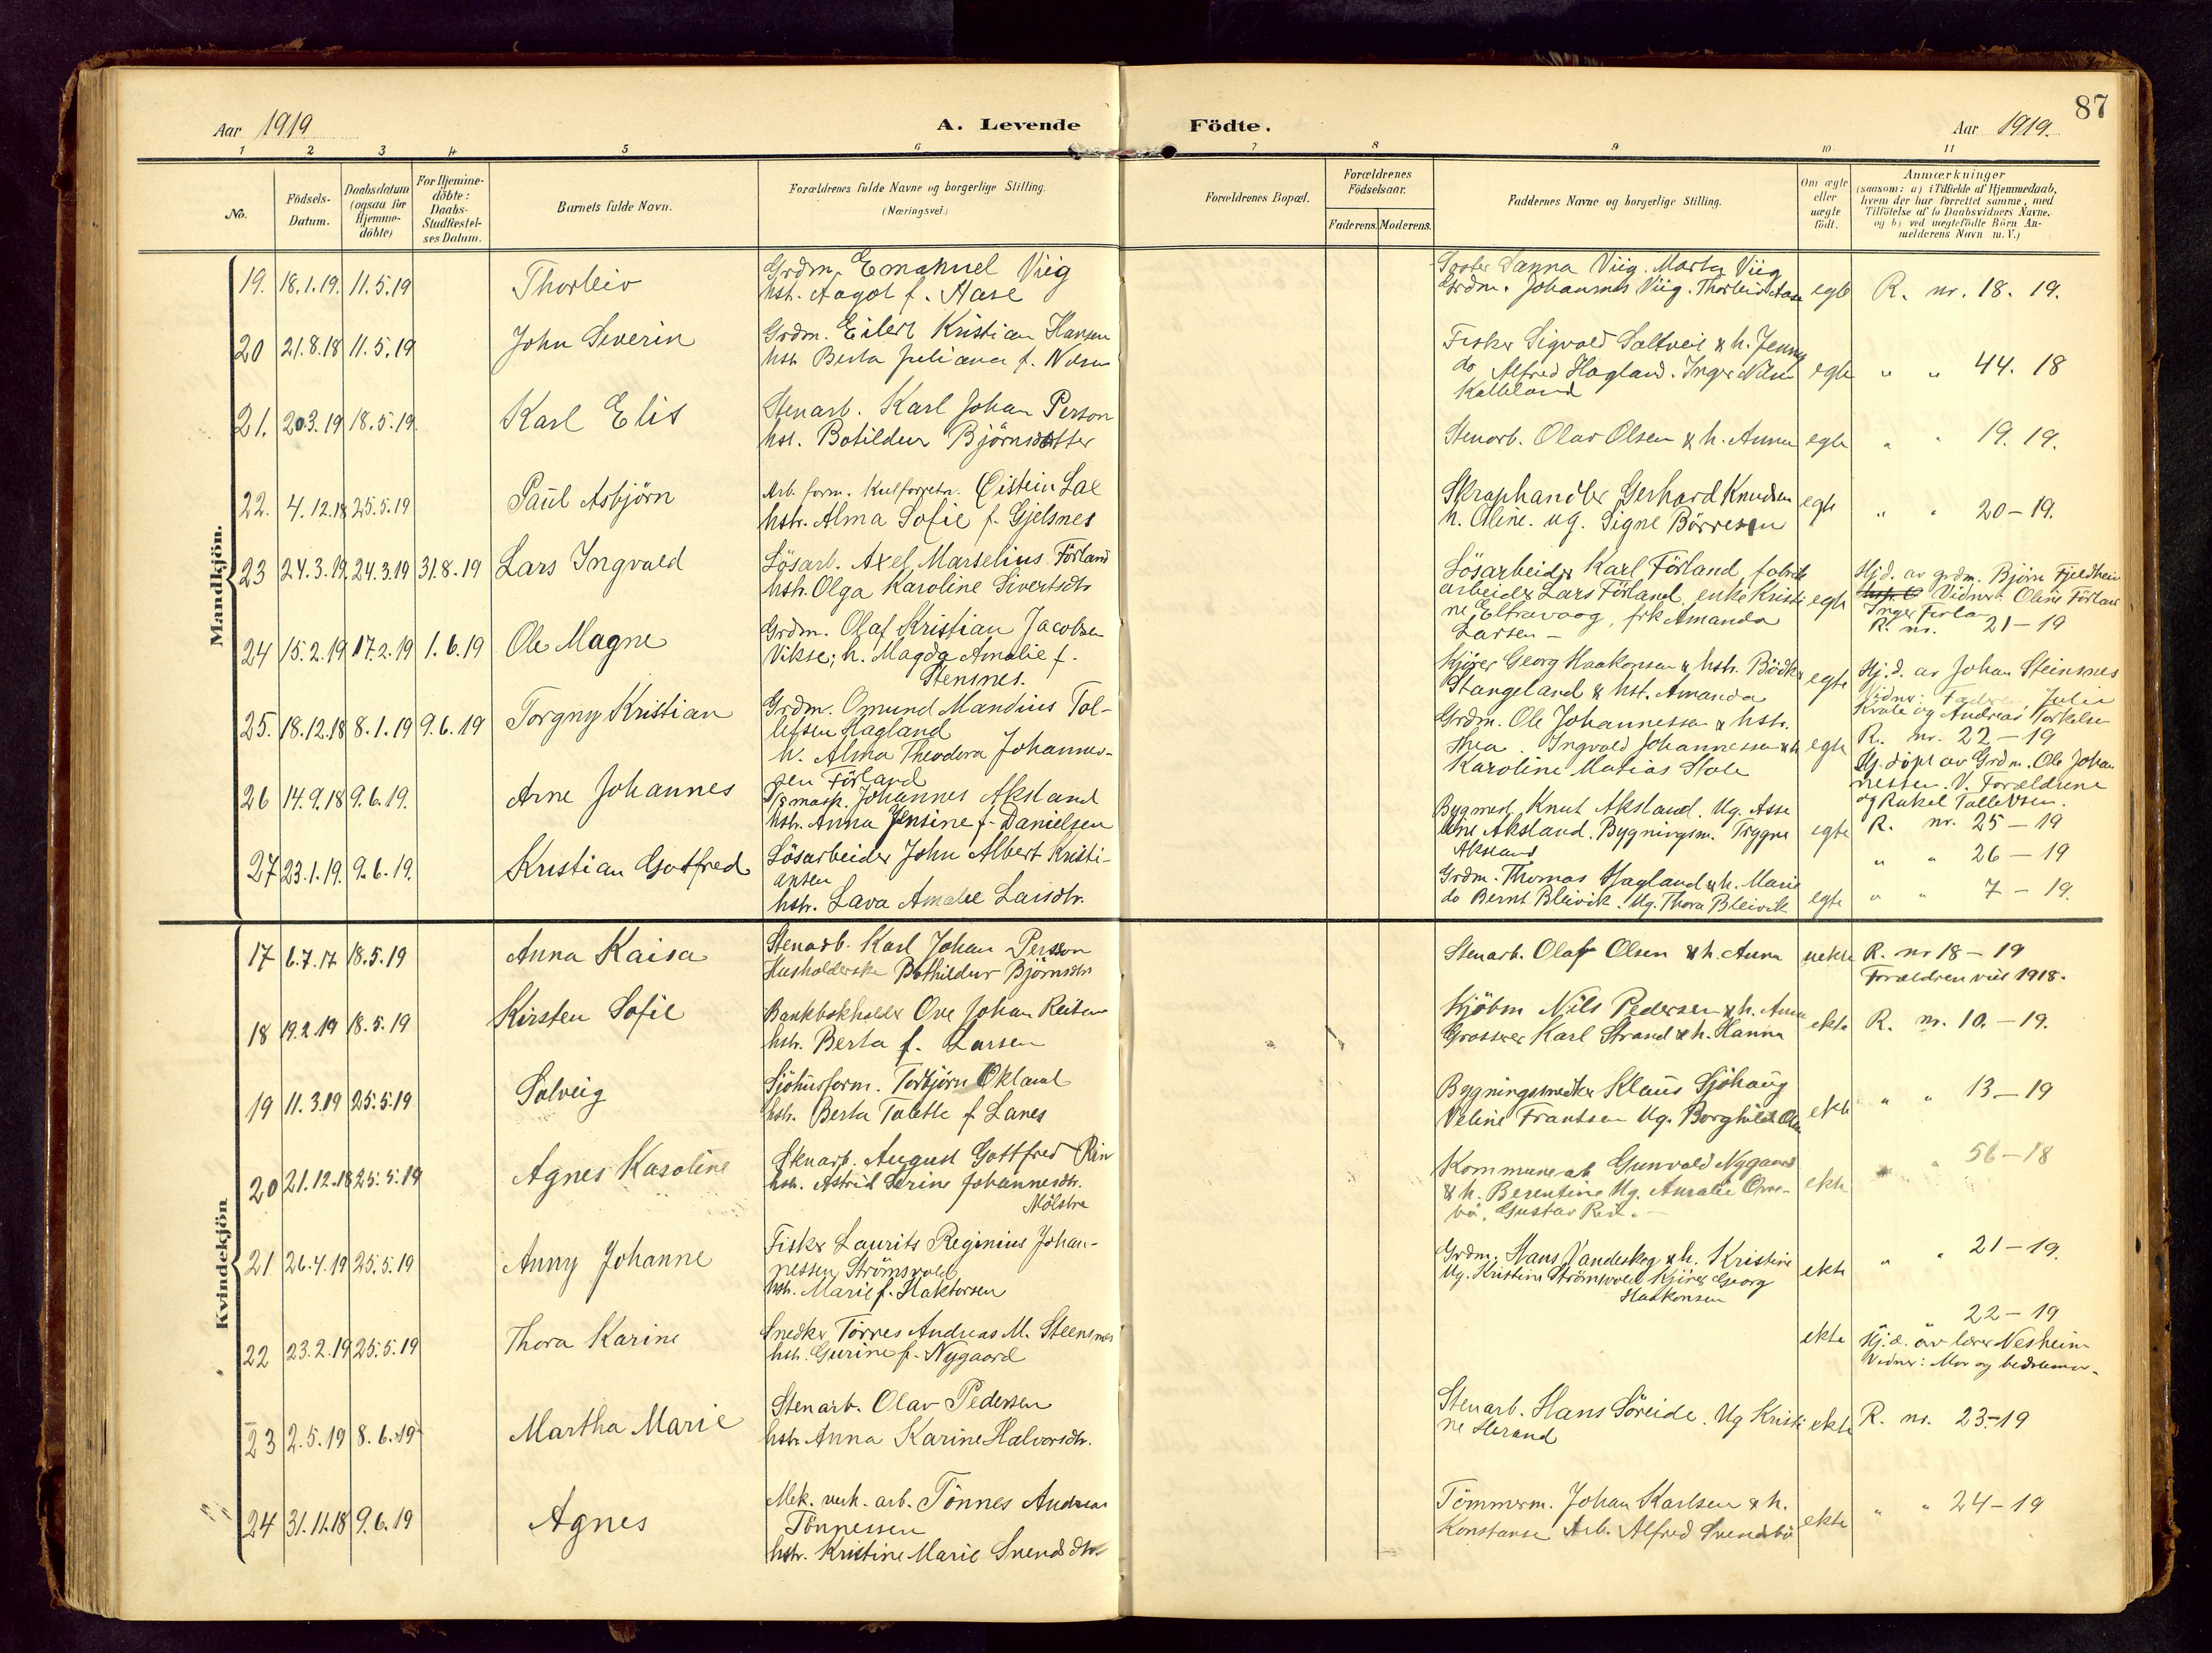 87
Aar 1919
A. Levende
Födte.
Aar 1919.
1 2 3 4 5 6 7 8 9 10 11
No.
Födsels-
Datum.
Daabsdatum
(ogsaa for
Hjemme-
döbte)
For Hjemme-
döbte:
Daabs-
Stadfestel-
ses Datum.
Barnets fulde Navn.
Forældrenes fulde Navne og borgerlige Stilling.
(Næringsvei.)
Forældrenes Bopæl.
Forældrenes
Födselsaar.
Faderens. Moderens.
Faddernes Navne og borgerlige Stilling.
Om ægte
eller
uægte
födt.
Anmærkninger
(saasom: a) i Tilfælde af Hjemmedaab,
hvem der har forrettet samme, med
Tilföielse af to Daabsvidners Navne.
og b) ved uægtefödte Börn An-
melderens Navn m. V.)
Mandkjön.
19. 18.1.19. 11.5.19 Thorleiv
Grdm. Emanuel Viig
hst. Aagot f. Aase
Sanna Viig. Marta Viig
Grdm. Johannes Viig. Thorleiv Aase
egte
R. nr. 18. 19.
20 21.8.18 11.5.19 John Severin
Grdm. Eilert Kristian Hansen
hstr Berta Juliana f. Nilsen
Fisker Sigvald Saltveit & h. Jenny
do Alfred Hagland. Inger
egte
" " 44. 18
21. 20.3.19 18.5.19 Karl Elis
Stenarb. Karl Johan Person
hst. Botildur Björnsdotter
Stenarb. Olav Olsen & h. Anna
egte
" " 19. 19.
22. 4.12.18 25.5.19 Paul Asbjörn
Arb. form. Kulforretn. Öistein Lae
hstr. Alma Sofie f. Gjelsnes
Skraphandler Gerhard Knudsen
h. Oline. ug. Signe Börresen
egte
" " 20-19.
23 24.3.19 24.3.19 31.8.19 Lars Ingvald
Lösarb. Axel Marselius Förland
hstr. Olga Karoline Sivertsdtr
Lösarbeider Karl Förland, fabrik
arbeider Lars Förland, enke Kristi
ne Eltravaag, frk Amanda
Larsen -
egte
Hjd. av grdm. Björn Fjeldheim
Vidner: Oline Förland
Inger
R. nr. 21-19
24 15.2.19 17.2.19 1.6.19 Ole Magne
Grdm. Olaf Kristian Jacobsen
Vikse; h. Magda Amalie f.
Stensnes.
Kjører Georg Haakonsen & hstr.
Stangeland & hst. Amanda
egte
Hj.d. av Johan Steinsnes
Vidner: Julie
Kvale og Andreas Torkelsen
R. nr. 22-19
25. 18.12.18 8.1.19 9.6.19 Torgny Kristian
Grdm. Omund Mandius Tol-
lefsen Hagland
h. Alma Theodora Johannes-
sen Förland
Grdm. Ole Johannessen & hstr.
Thea. Ingvald Johannessen & h
Karoline Matias Hole
egte
Hj.döpt av Grdm. Ole Johan
nessen. V. Forældrene
og Rakel Tollefsen.
R. nr. 25-19
26 14.9.18 9.6.19. Arne Johannes
Johannes Aksland
hstr. Anna Jensine f. Danielsen
Bygmest. Knut Aksland. Ug. Asse
line Aksland. Bygningsm. Trygve
Aksland
egte
" " 26-19
27 23.1.19. 9.6.19. Kristian Gotfred
Lösarbeider John Albert Kristi-
ansen
hstr. Lava Amalie Larsdtr.
Grdm. Thomas Hagland & h. Marie
do Bernt Bleivik. Ug. Thora Bleivik
egte
" " 7-19.
Kvindekjön
17 6.7.17 18.5.19 Anna Kaisa
Stenarb. Karl Johan Person
Husholderske Bothildur Björnsdtr
Stenarb. Olaf Olsen & h. Anna
uekte
R. nr 18-19
Forældren viet 1918.
18 19.2.19 18.5.19 Kirsten Sofie
Bankbokholder Ove Johan Reiten
hstr. Berta f. Larsen
Kjöbm Nils Pedersen & h. Anna
Grosserer Karl Strand & h. Hanna
ekte
R. nr. 10.-19.
19 11.3.19 25.5.19 Solveig
Sjöhusform. Torbjörn Økland
hstr. Berta Tolette f. Lanes
Bygningssnedker Klaus Sjöhaug
Veline Frantsen Ug. Borghild
ekte
" " 13-19
20 21.12.18 25.5.19 Agnes Karoline
Stenarb. August Gottfred
hstr. Astrid Serine Johannesdtr.
Mölstre
Kommuneab Gunvald Nygaard
& h. Berentine Ug. Amalie
Gustav
ekte
" " 56-18
21 26.4.19 25.5.19 Anny Johanne
Fisker Laurits Reginius Johan-
nessen Strömsvold
hstr. Marie f. Haktorsen
Grdm. Hans Vandeskog & h. Kristine
Ug. Kristine Strömsvold Kjörer Georg
Haakonsen
ekte
" " 21-19.
22 23.2.19 25.5.19 Thora Karine
Snedker Tørres Andreas M. Steensnes
hstr. Gurine f. Nygaard
ekte
22-19
Hj.d. av lærer Nesheim
Vidner: Mor og bedstemor.
23 2.5.19 8.6.19 Martha Marie
Stenarb. Olav Pedersen
hstr. Anna Karine Halvorsdtr.
Stenarb. Hans Søreide. Ug Kristi
ne
ekte
R. nr. 23-19
24 31.11.18 9.6.19 Agnes
Mek. verk. arb. Tønnes Andreas
Tønnessen
hstr. Kristine Marie Svendsdtr
Tömmerm. Johan Karlsen & h.
Konstanse Arb. Alfred Svendsbö
ekte
" " 24-19